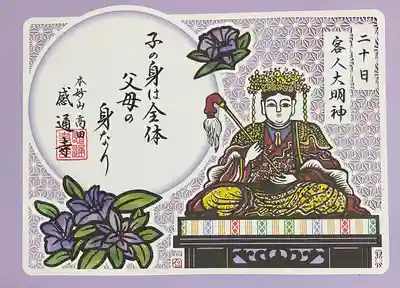 二十日
客人大明神
子の身は全体
父母の
身なり
本妙山 高田
感通寺